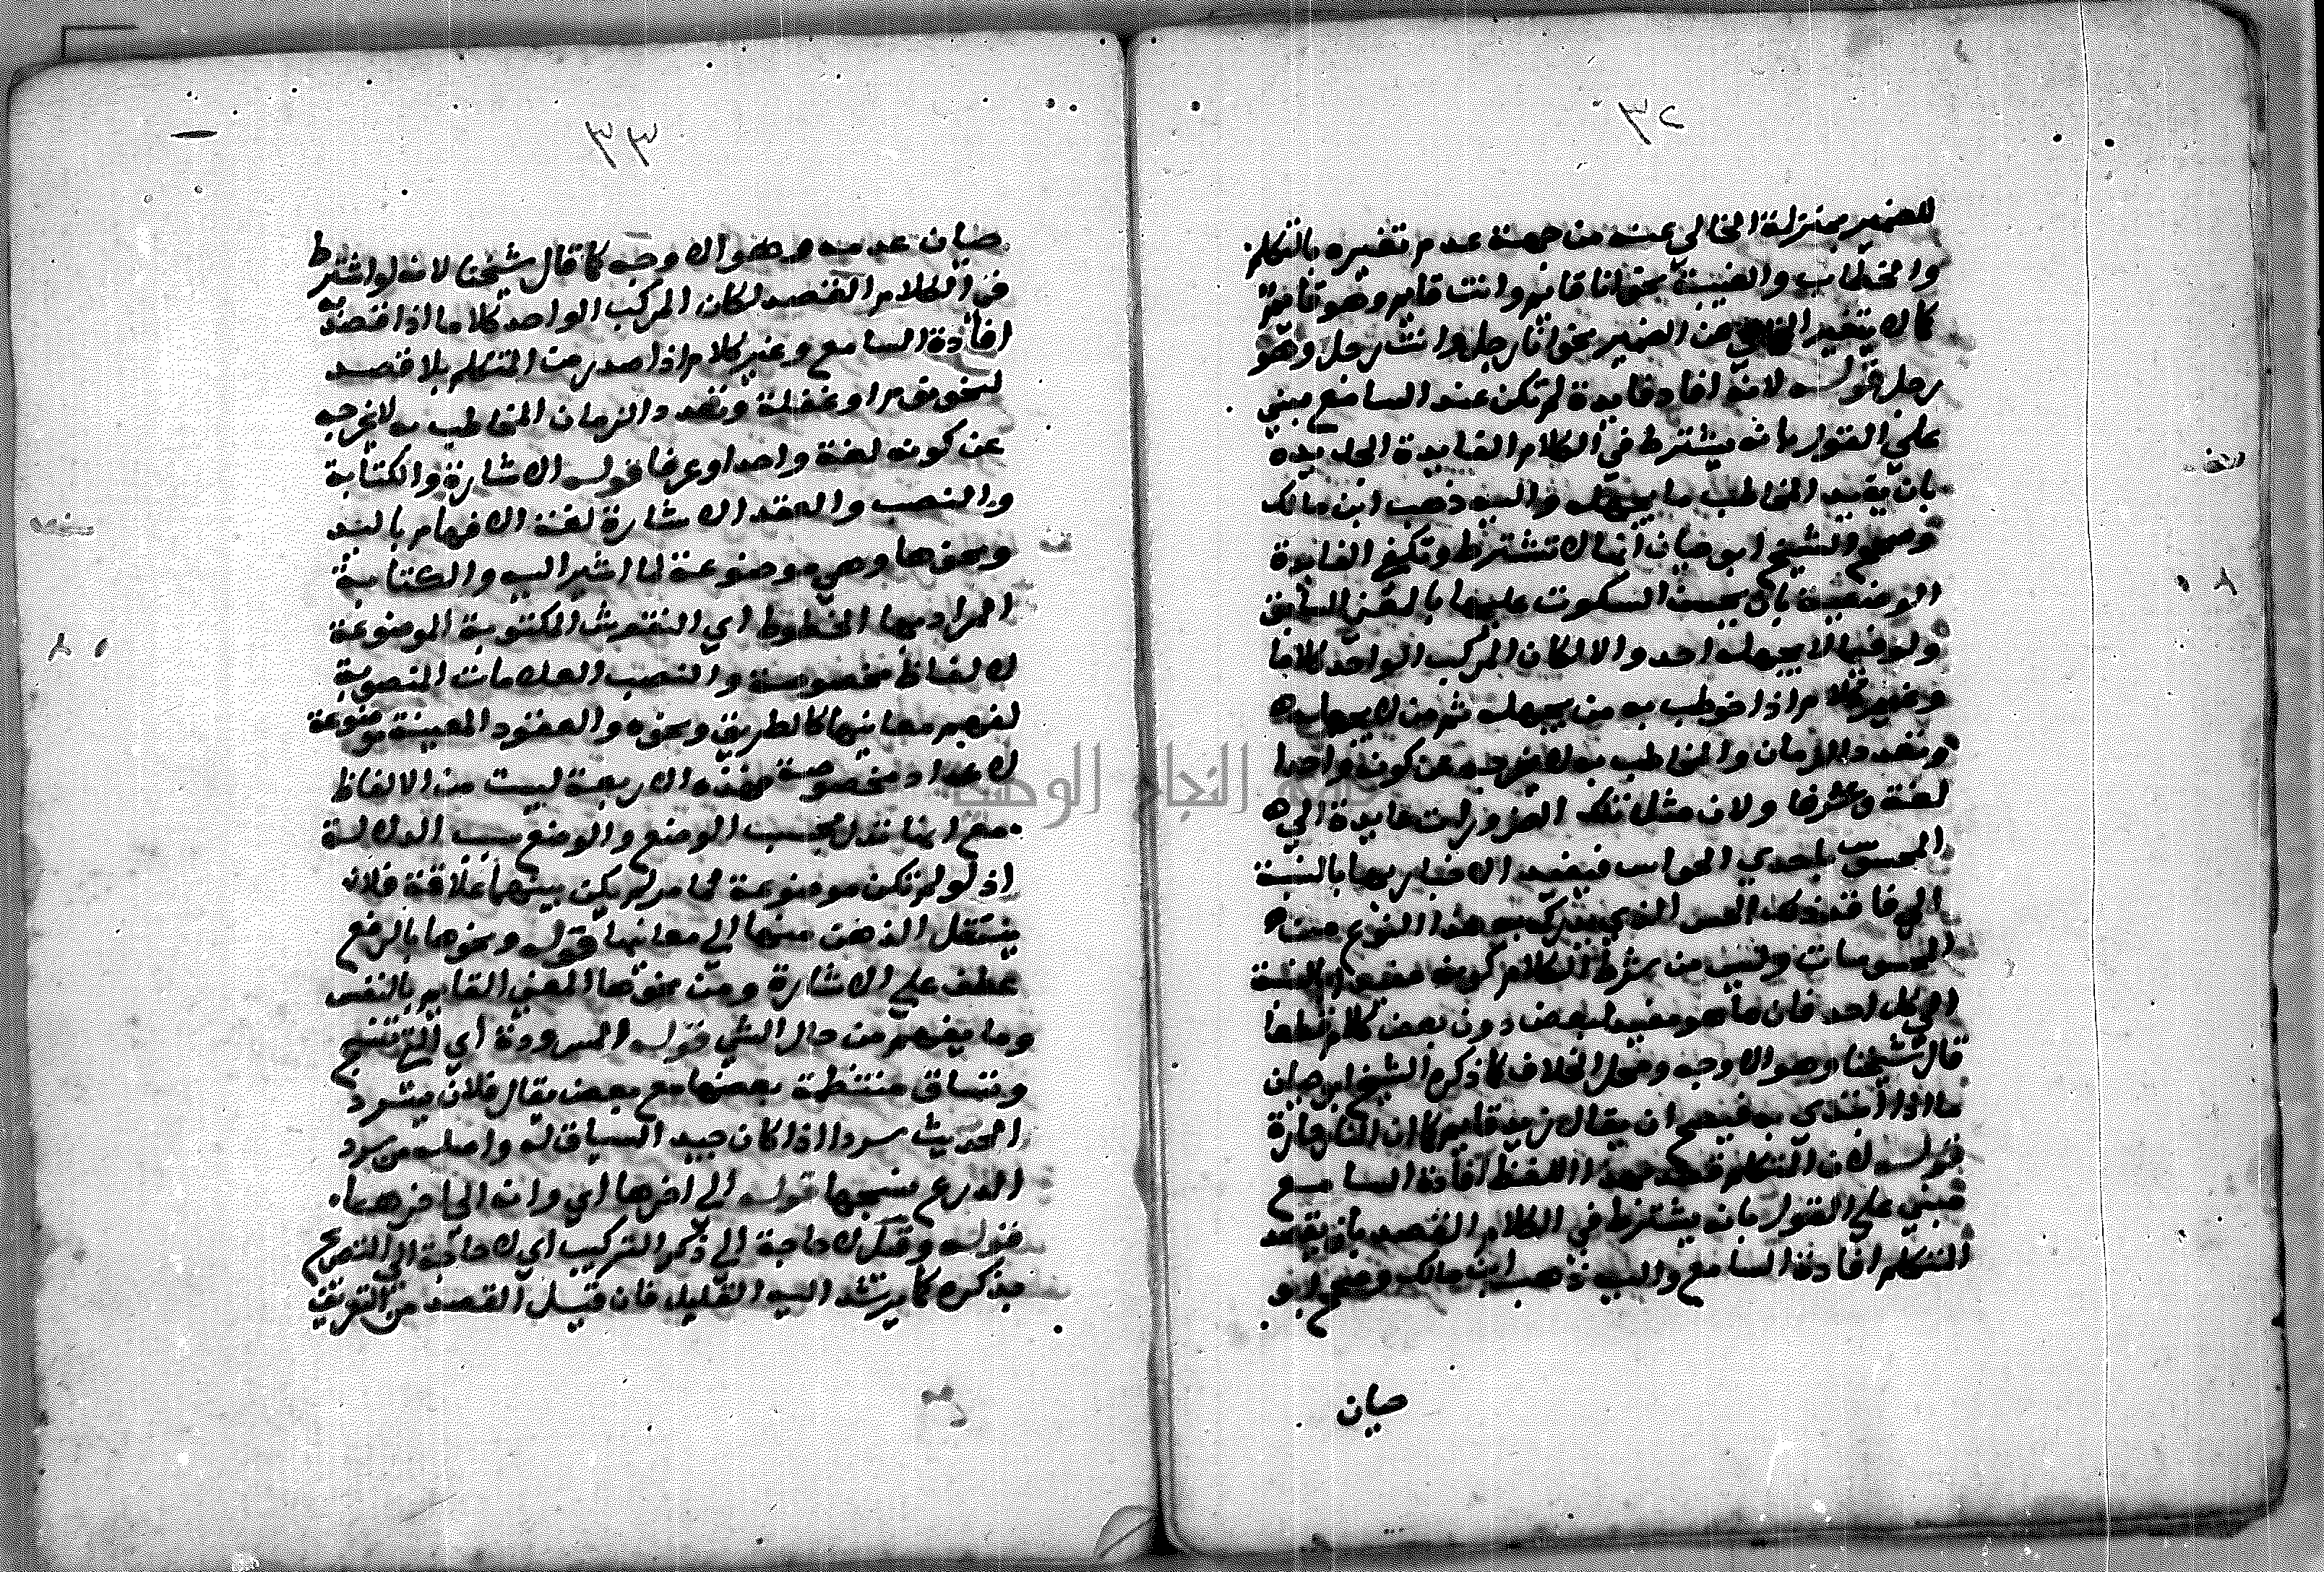 ٣٢
للضمير بمنزلة الخالي عنه من جهة عدم تغيره بالتكلم
والخطاب والغيبة نحو انا قايم وانت قايم وهو قايم
كما لا يتغير الخالي عن الضمير نحو انا رجل وانت رجل وهو
رجل قوله لانه افاد فايدة لم تكن عند السامع مبني
على القول بانه يشترط في الكلام الفايدة الجديدة
بان يفيد المخاطب ما يجهله واليه ذهب ابن مالك
وصحح الشيخ ابو حيان انها لا تشترط وتكفي الفايدة
الوضعية بان يحسن السكوت عليها بالمعنى السابق
ولو فيما لا يجهله احد والا لكان المركب الواحد كلاما
وغير كلام اذا خوطب به من يجهله ثم من لا يجهله
وتعدد الزمان والمخاطب به لا يخرجه عن كونه واحدا
لغة وعرفا ولان مثل تلك الضروريات عايدة الى
المحسوس باحدي الحواس فيفيد الاخبار بها بالنسبة
الى فاقد ذلك الحس الذي يدرك به هذا النوع من
المحسوسات وليس من شرط الكلام كونه مفيدا بالنسبة
الى كل احد فان ما هو مفيد لبعض دون بعض كلام قطعا
قال شيخنا وهو الاوجه ومحل الخلاف كما ذكره الشيخ ابو حيان
ما اذا ابتدي به فيصح ان يقال زيد قايم كما ان النار حارة
قوله لان المتكلم قصد بهذا اللفظ افادة السامع
مبني على القول بانه يشترط في الكلام القصد بان يقصد
المتكلم افادة السامع واليه ذهب ابن مالك وصحح ابو
حيان
٣٣
حيان عدمه وهو الاوجه كما قال شيخنا لانه لو اشترط
في الكلام القصد لكان المركب الواحد كلاما اذا قصد به
افادة السامع وغير كلام اذا صدر من المتكلم بلا قصد
لنحو نوم او غفلة وتعدد الزمان المخاطب به لا يخرجه
عن كونه لغة واحدا وعرفا قوله الاشارة والكتابة
والنصب والعقد الاشارة لغة الافهام باليد
ونحوها وهي موضوعة لما اشير اليه والكتابة
المراد بها الخطوط اي النقوش المكتوبة الموضوعة
لالفاظ مخصوصة والنصب العلامات المنصوبة
لفهم معانيها كالطريق ونحوه والعقود المعينة موضوعة
لاعداد مخصوصة فهذه الاربعة ليست من الالفاظ
مع انها تدل بحسب الوضع والوضع سبب الدلالة
اذ لو لم تكن موضوعة لما مر لم يكن بينهما علاقة فلا
ينتقل الذهن منها الى معانيها قوله ونحوها بالرفع
عطف على الاشارة ومن نحوها المعنى القايم بالنفس
وما يفهم من حال الشي قوله المسرودة اي التي تنسج
وتساق منتظمة بعضها مع بعض يقال فلان يسرد
الحديث سردا اذا كان جيد السياق له واصله من سرد
الدرع نسجها قوله الى اخرها اي وانته الى اخرها
قوله وقيل لا حاجة الى ذكر التركيب اي لا حاجة الى التصريح
بذكره كما يرشد اليه التعليل فان قيل القصد من التعريف